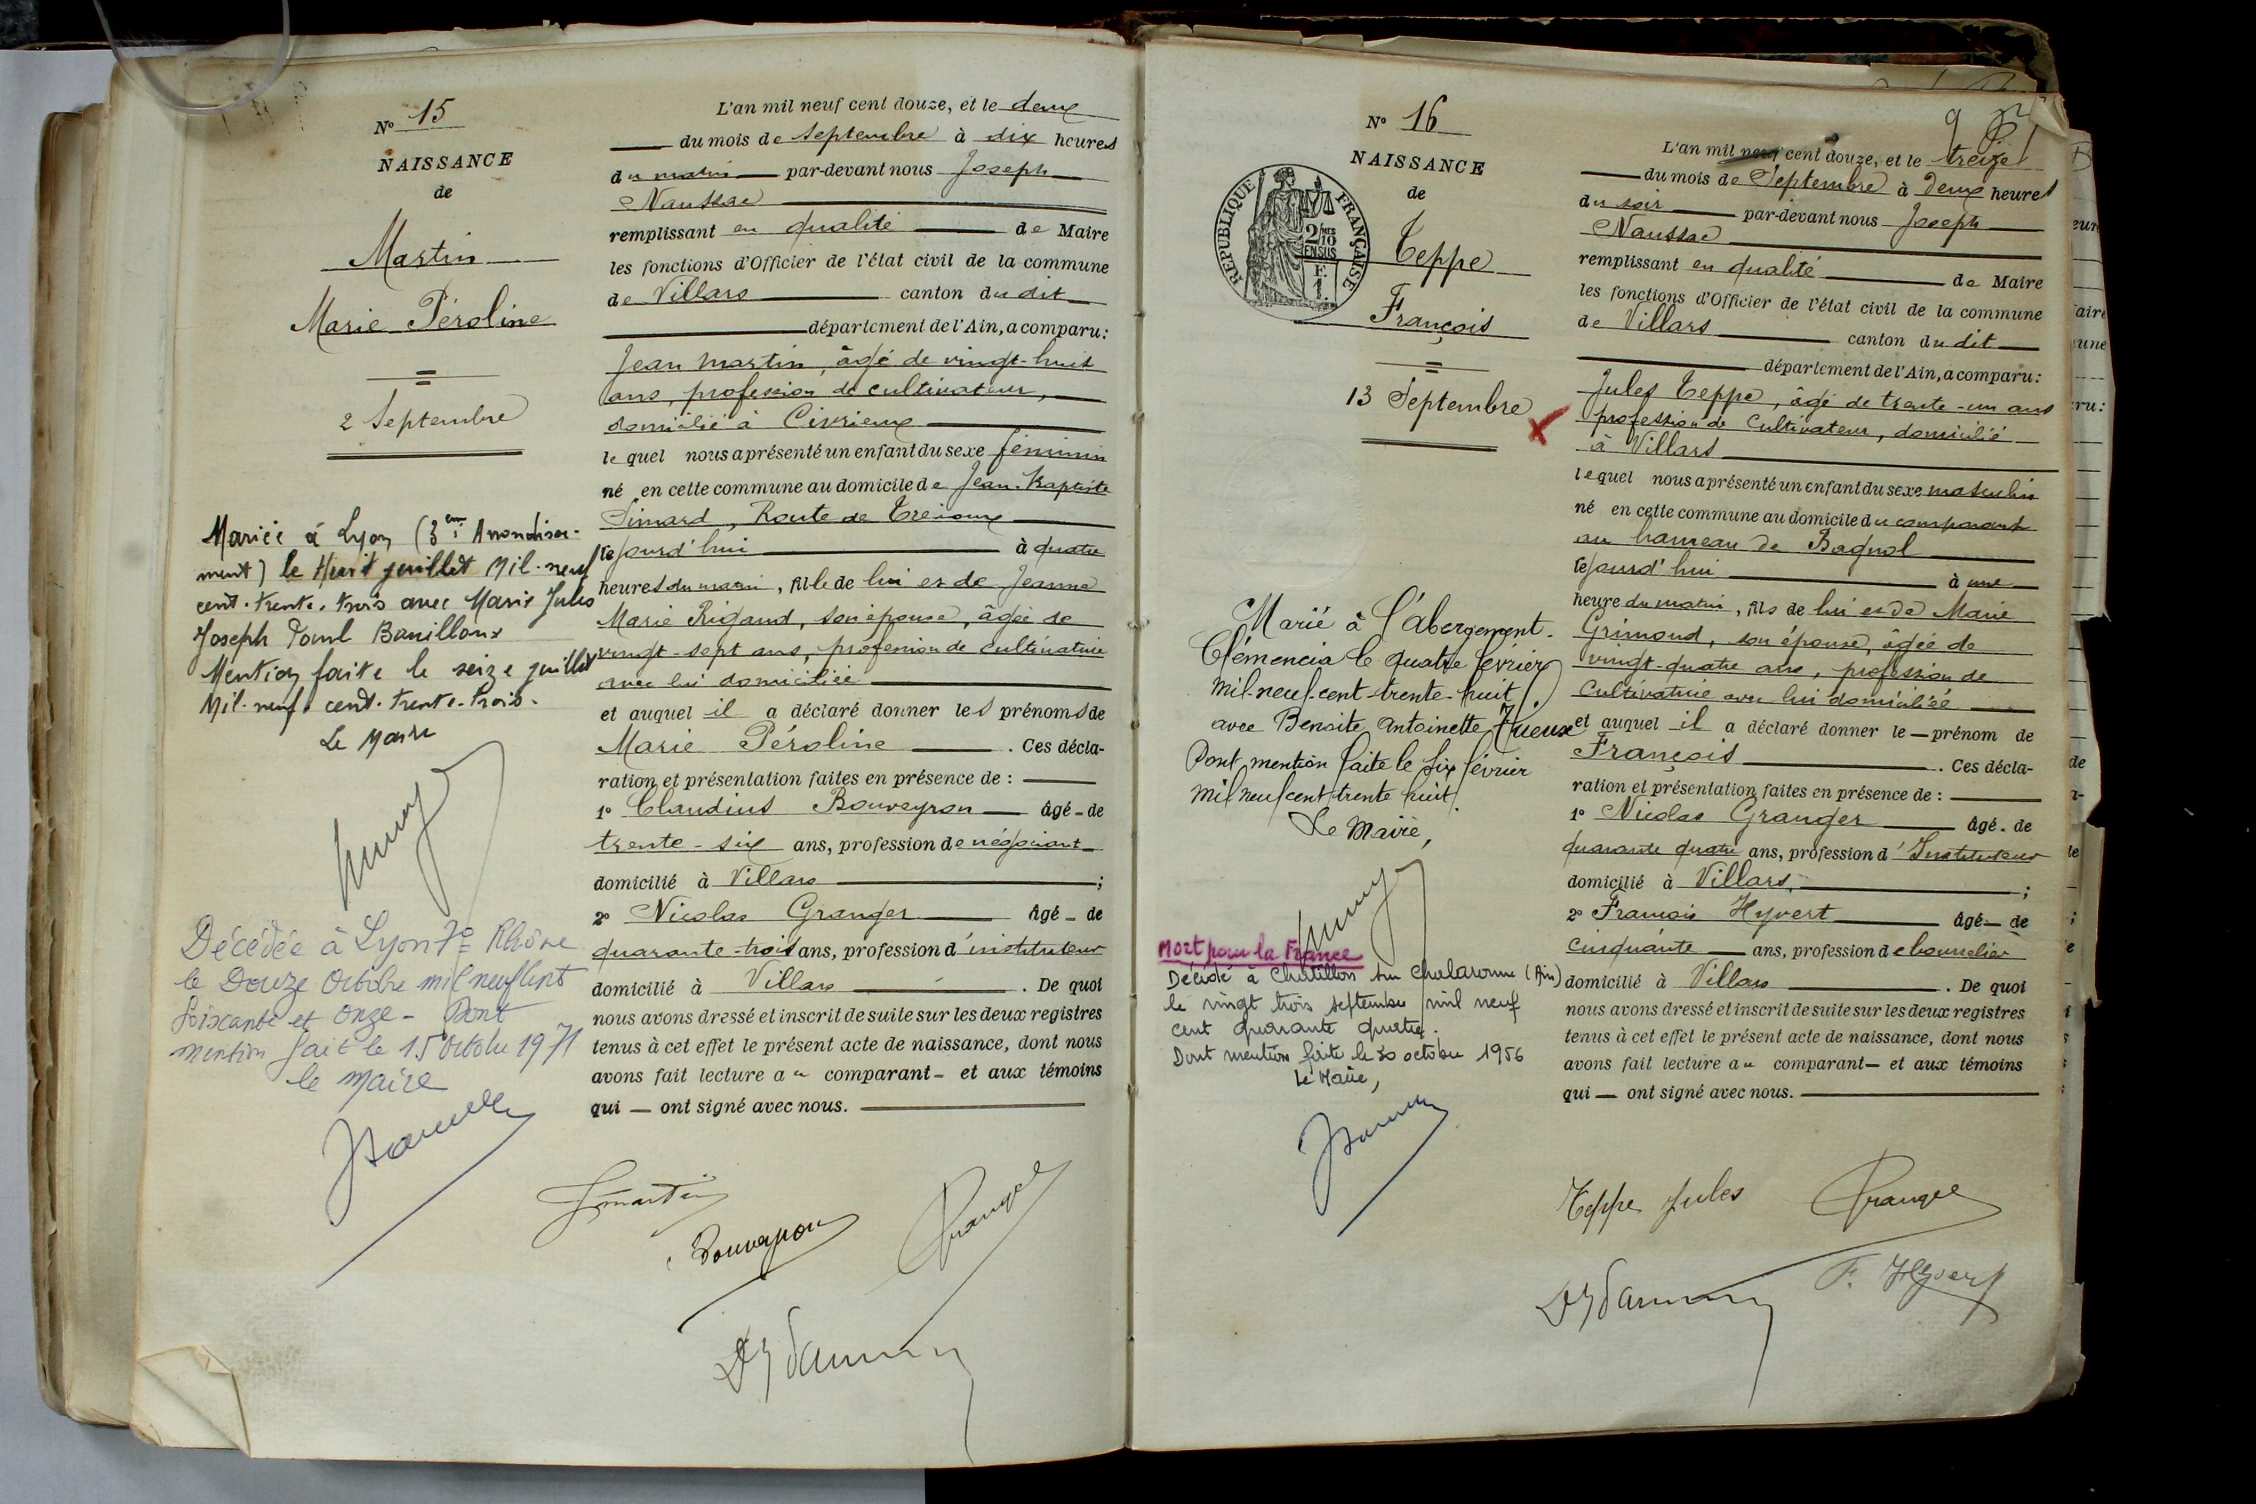 N° 15
NAISSANCE
de
Martin
Marie Péroline
2 Septembre
Mariée à Lyon (3ème Arrondisse-
ment) le Huit juillet Mil-neuf
cent-trente-trois avec Marie Jules
Joseph Paul
Mention faite le seize juillet
Mil-neuf-cent-trente-trois-
Le Maire
Décédée à Lyon 7e Rhône
le Douze Octobre mil neuf cent
soixante et onze - Dont
mention fait le 15 Octobre 1971
le Maire
L'an mil neuf cent douze, et le deux
du mois de septembre à dix heures
du matin par-devant nous Joseph
Naussac
remplissant en qualité de Maire
les fonctions d'Officier de l'état civil de la commune
de Villars canton du dit
département de l'Ain, a comparu:
Jean Martin, âgé de vingt-huit
ans, profession de cultivateur,
domicilié à Civrieux
lequel nous a présenté un enfant du sexe féminin
né en cette commune au domicile de Jean-Baptiste
Simard, Route de Trévoux
cejourd'hui à quatre
heures du matin, fille de lui et de Jeanne
Marie Rigaud, son épouse, âgée de
vingt-sept ans, profession de cultivatrice
avec lui domiciliée
et auquel il a déclaré donner les prénoms de
Marie Péroline . Ces décla-
ration et présentation faites en présence de :
1° Claudius Bouveyron âgé de
trente-six ans, profession de négociant
domicilié à Villars ;
2° Nicolas Granger âgé de
quarante-trois ans, profession d'instituteur
domicilié à Villars . De quoi
nous avons dressé et inscrit de suite sur les deux registres
tenus à cet effet le présent acte de naissance, dont nous
avons fait lecture au comparant et aux témoins
qui ont signé avec nous.
J Martin
Bouveyron
Granger
N° 16
NAISSANCE
de
Teppe
François
13 Septembre
RÉPUBLIQUE FRANÇAISE
2/10
EN SUS
F.
1.
Marié à l'abergement-
Clémencia le quatre février
mil-neuf-cent-trente-huit
avec Benoite Antoinette
Dont mention faite le six février
mil neuf cent trente huit.
Le Maire,
Mort pour la France
Décédé à Chatillon sur Chalaronne (Ain)
le vingt trois septembre mil neuf
cent quarante quatre.
Dont mention faite le 30 octobre 1956
Le Maire,
L'an mil neuf cent douze, et le treize
du mois de Septembre à deux heures
du soir par-devant nous Joseph
Naussac
remplissant en qualité de Maire
les fonctions d'Officier de l'état civil de la commune
de Villars canton du dit
département de l'Ain, a comparu:
Jules Teppe, âgé de trente-un ans
profession de Cultivateur, domicilié
à Villars
lequel nous a présenté un enfant du sexe masculin
né en cette commune au domicile du comparant
au hameau de Bagnol
cejourd'hui à une
heure du matin, fils de lui et de Marie
Grimond, son épouse, âgée de
vingt-quatre ans, profession de
Cultivatrice avec lui domiciliée
et auquel il a déclaré donner le prénom de
François . Ces décla-
ration et présentation faites en présence de :
1° Nicolas Granger âgé de
quarante quatre ans, profession d'Instituteur
domicilié à Villars ;
2° François Hyvert âgé de
cinquante ans, profession de bourrelier
domicilié à Villars . De quoi
nous avons dressé et inscrit de suite sur les deux registres
tenus à cet effet le présent acte de naissance, dont nous
avons fait lecture au comparant et aux témoins
qui ont signé avec nous.
Teppe Jules
Granger
F. Hyvert